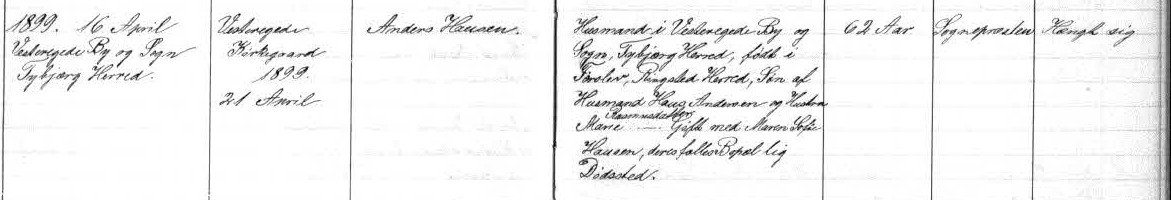 1899. 16 April
Vesteregede By og Sogn
Tybjærg Herred.
Vesteregede
Kirkegaard
1899.
21 April
Anders Hansen.
Husmand i Vesteregede By og
Sogn, Tybjærg Herred, født i
Farslev, Ringsted Herred, Søn af
Husmand Hans Andersen og Hustru
Rasmusdatter
Marie — Gift med Maren Sofie
Hansen, deres fælles Bopæl lig
Dødssted.
62 Aar
Sognepræsten
Hængt sig